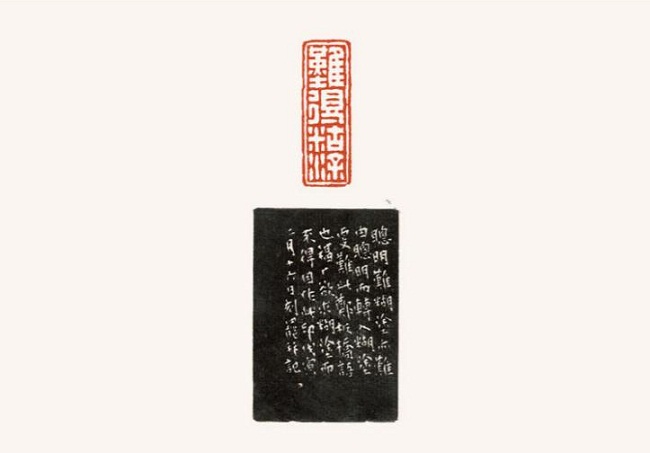 難得糊涂
聰明難糊塗亦難
由聰明而轉入糊塗
更難此鄭板橋語
也欲求糊塗而
未得因作此印戊寅
二月十六日刻罷并記